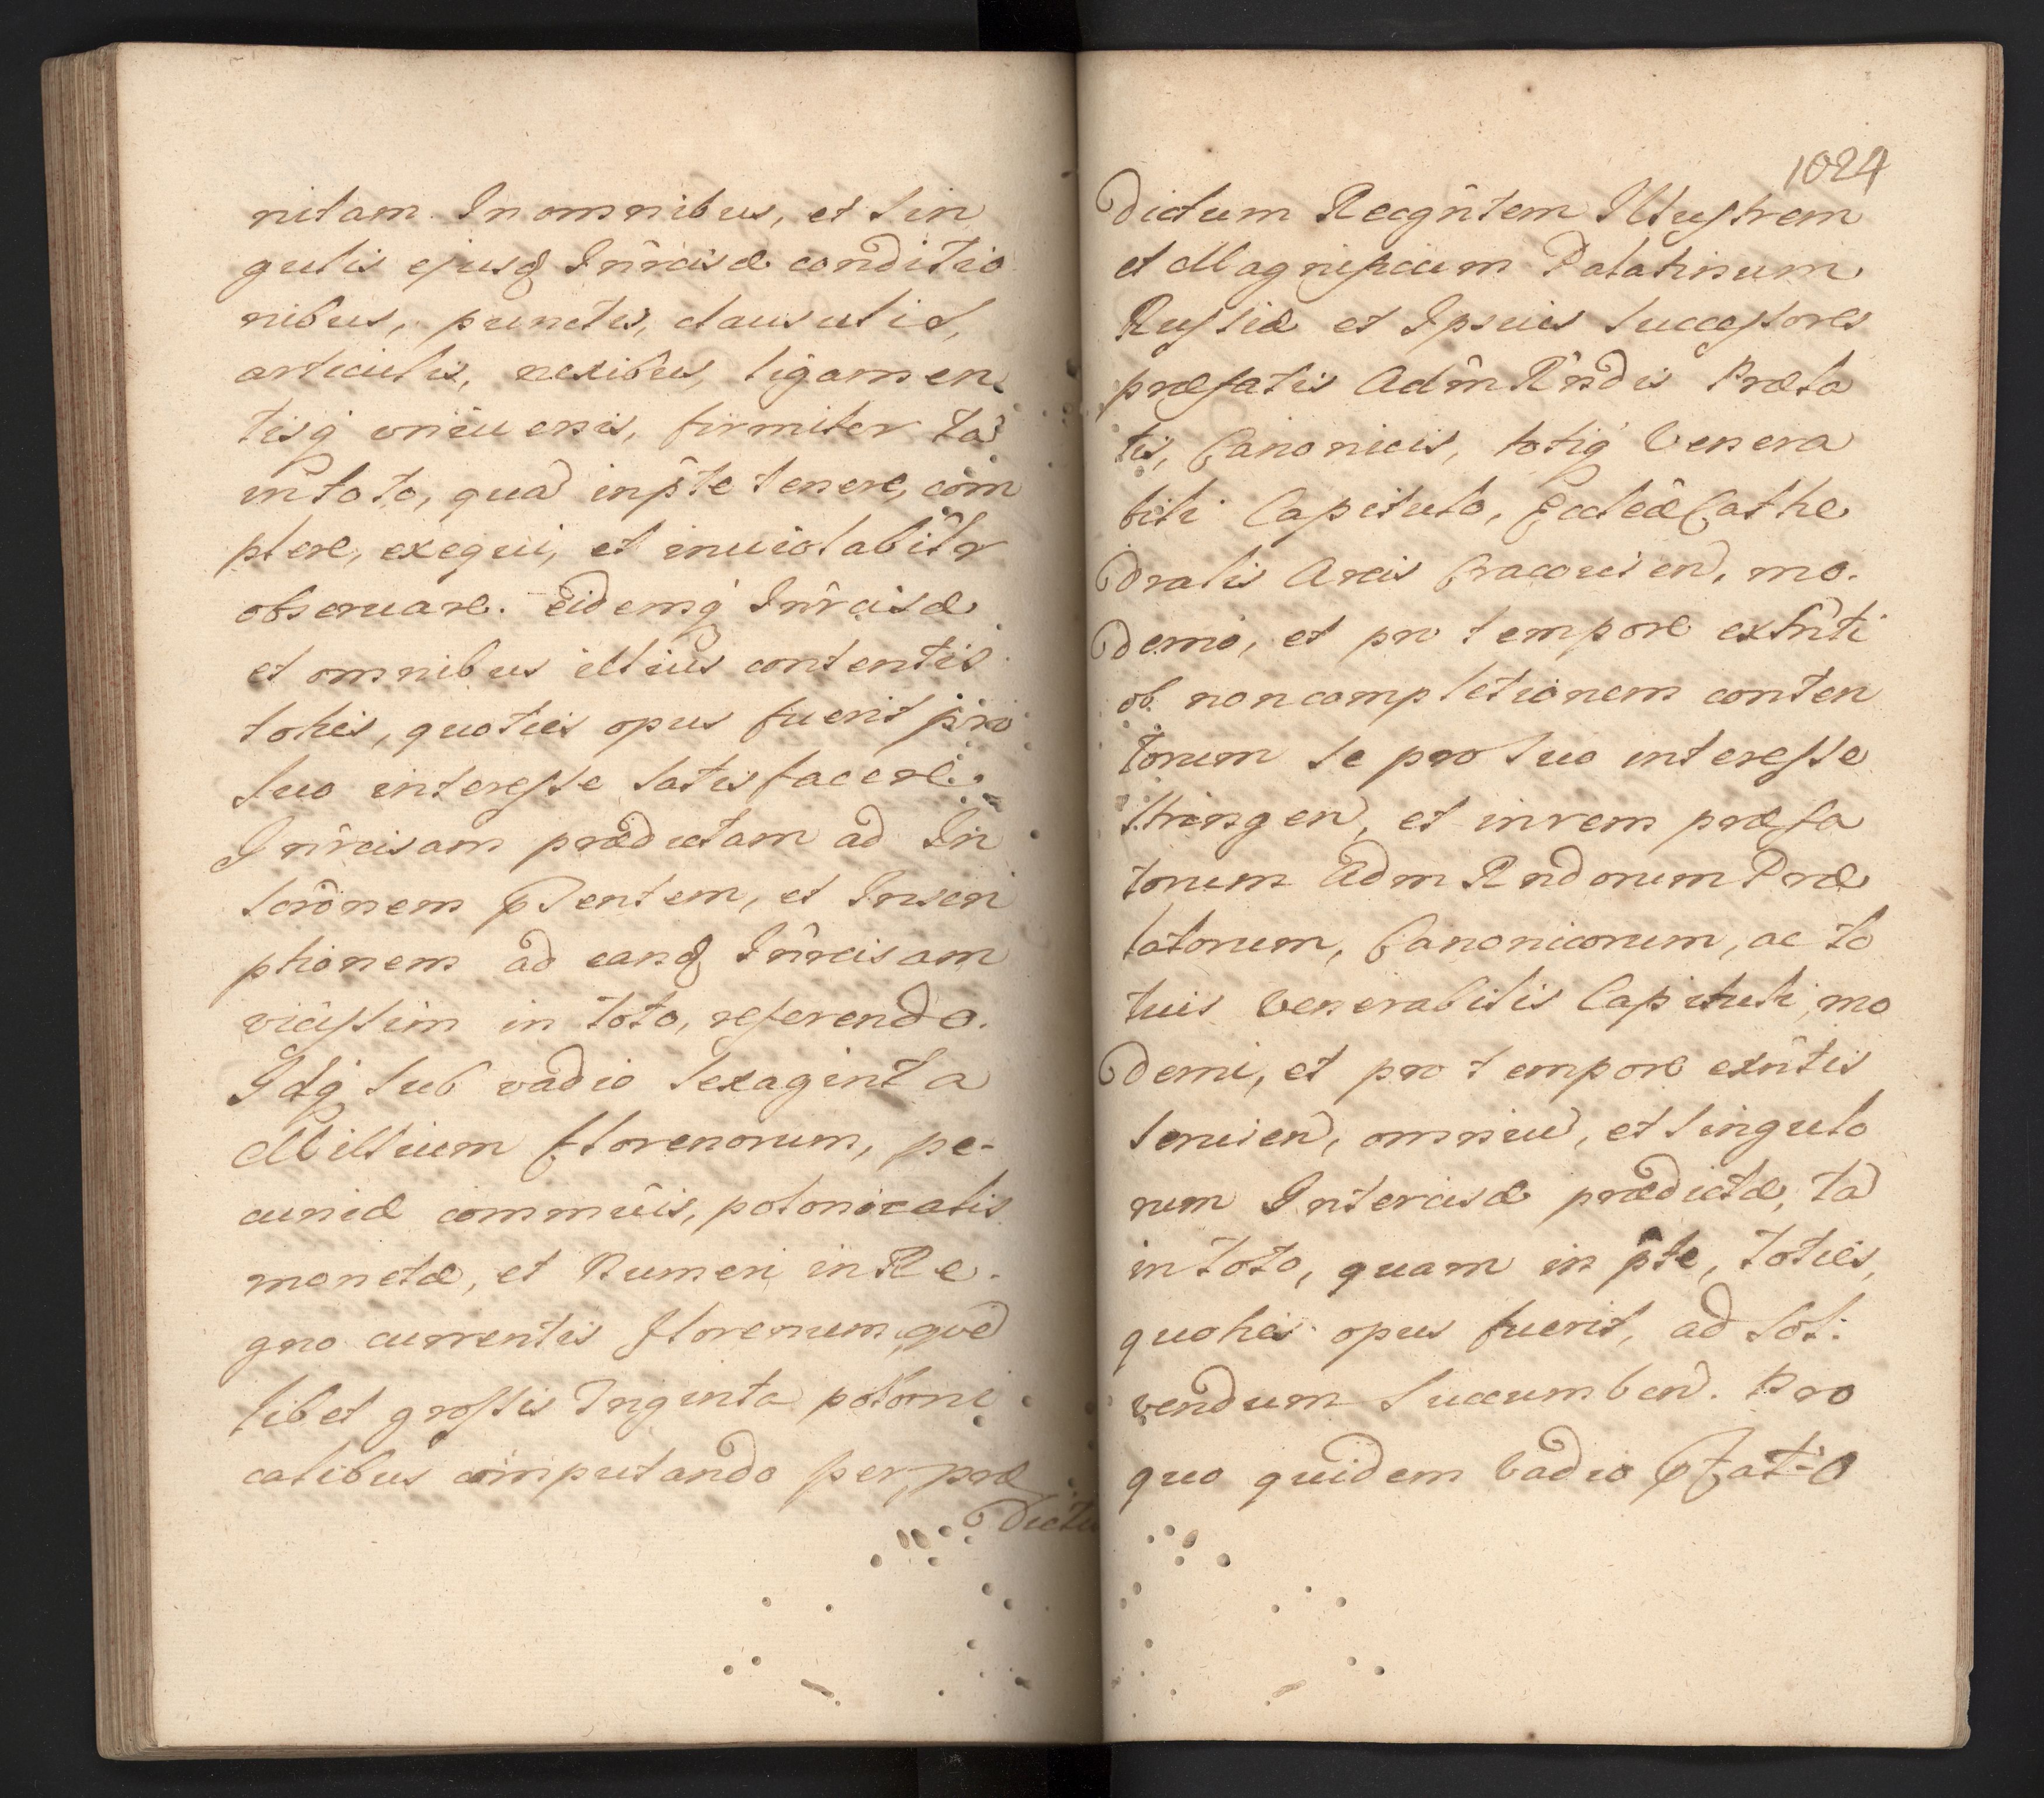 nitam. In omnibus, et sin
gulis ejusq Inrcisæ conditio
nibus, punctis, clausulis,
articulis, nexibus, ligamen
tisq vniuersis, firmiter ta
in toto, qua in pte tenere, com
plere, exequi, et inuiolabitr
obseruare. Eidemq Inrcisæ
et omnibus illius contentis
toties, quoties opus fuerit pro
suo interesse satisfacere.
Inrcisam prædictam ad In
scrōnem pntem, et Inscri
ptionem ad eandq Inrcisam
vicissim in toto, referendo.
Idq sub vadio sexaginta
Millium florenorum, pe-
cuniæ commūis, polonicalis
monetæ, et Numeri in Re-
gno currentis florenum quod
libet grossis Triginta poloni
calibus computando per, præ
dictu
1024
dictum Recgntem Illustrem
et Magnificum Palatinum
Russiæ et Ipsius successores
præfatis Adm Rndis Præla
tis, Canonicis, totiq Venera
bili Capitulo, Eccleæ Cathe
dralis Arcis Cracouien, mo-
derno, et pro tempore extnti
ob non completionem conten
torum se pro suo interesse
stringen, et in rem præfa
torum Adm Rndorum Præ
latorum, Canonicorum, ac to
tius Venerabilis Capituli, mo
derni, et pro tempore exntis
seruien, omniu, et singulo
rum Intercisæ prædictæ, ta
in toto, quam in pte, toties,
quoties opus fuerit, ad sol-
vendum succumben. Pro
quo quidem Vadio pfato